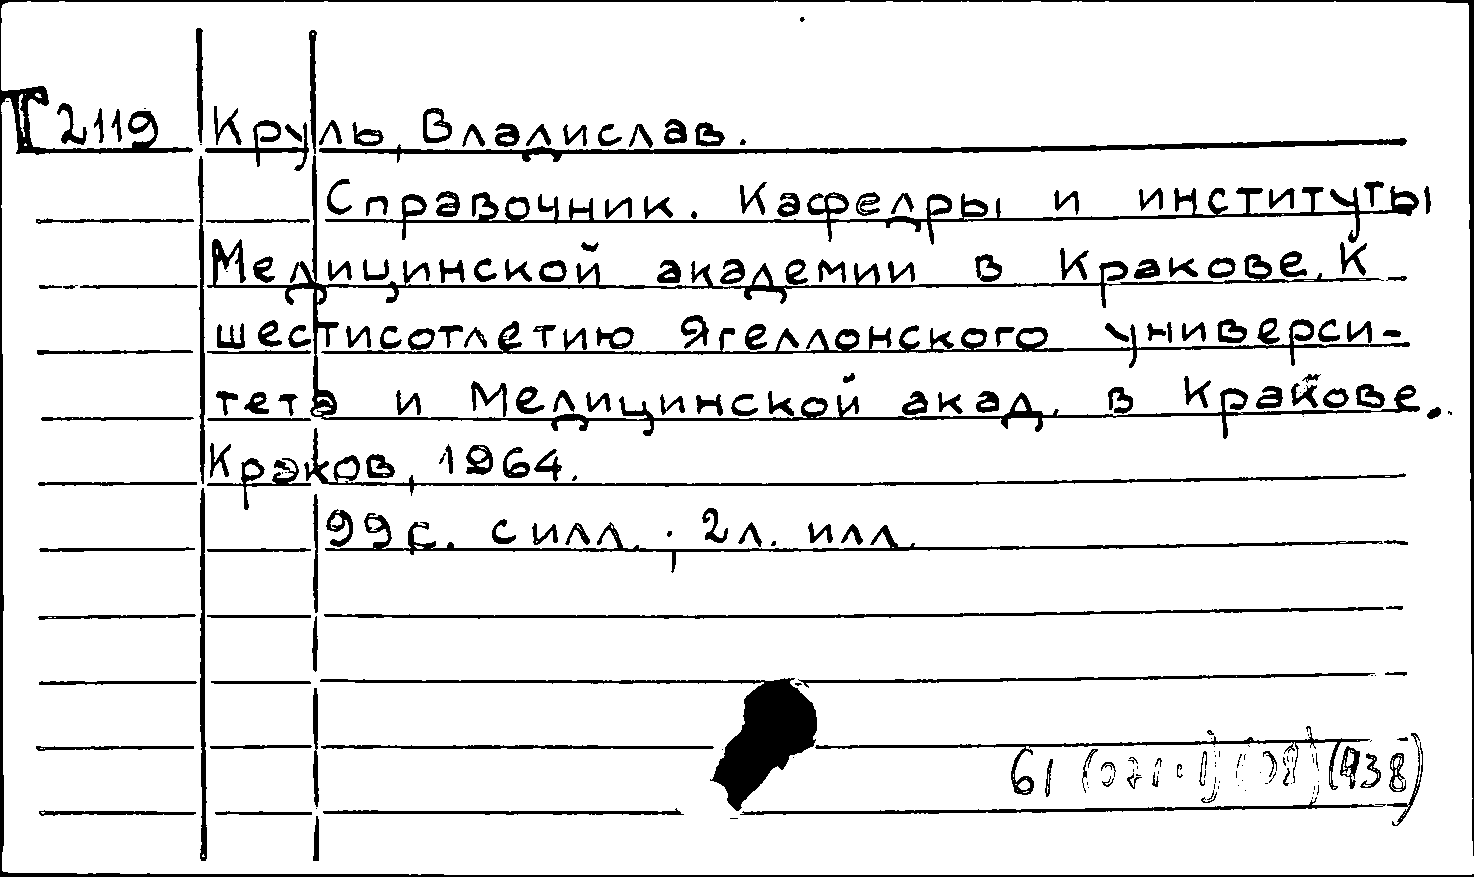 Т 2119 Круль, Владислав.
Справочник. Кафедры и институты
Медицинской академии в Кракове. К
шестисотлетию Ягеллонского универси-
тета и Медицинской акад. в Кракове.
Краков, 1964.
99 с. с илл.; 2 л. илл.
61 (071.1) (08) (438)